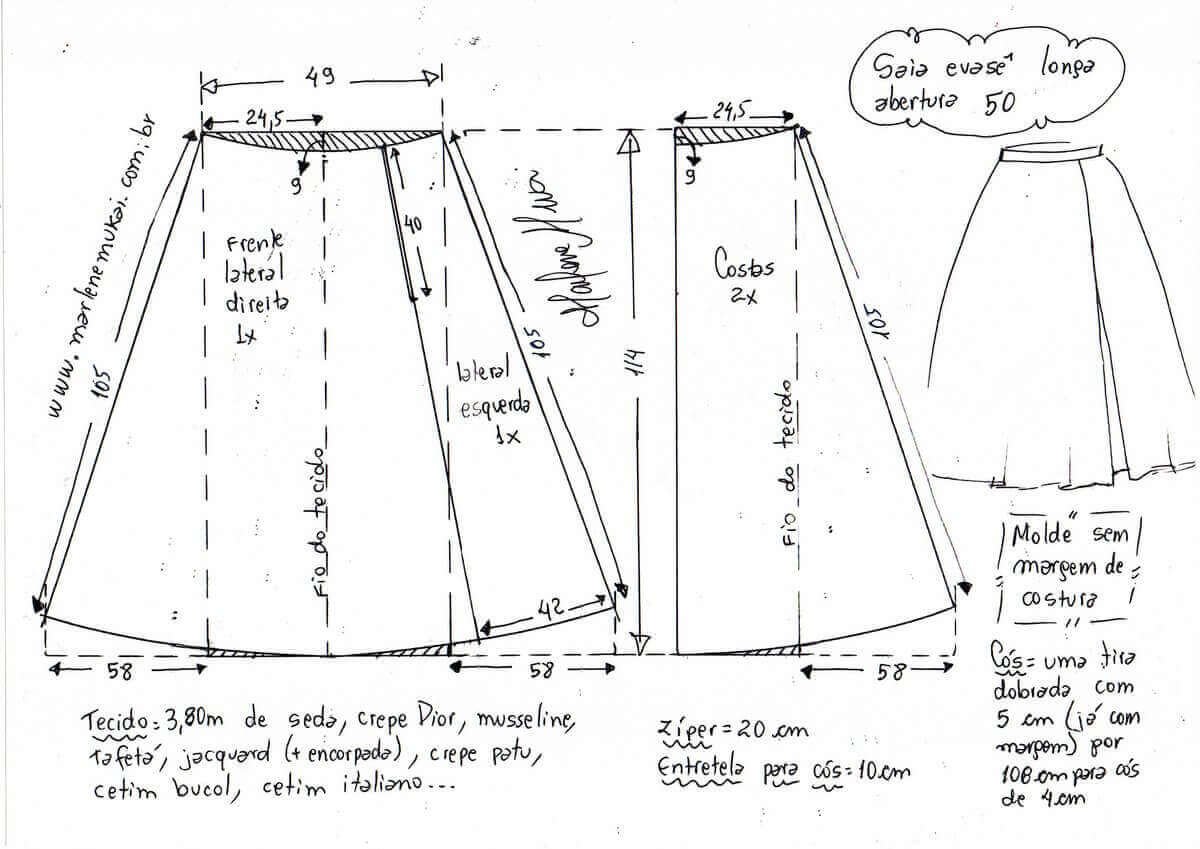 Saia evasê longa
abertura 50
www.marlenemukai.com.br
49
24,5
9
40
Frente
lateral
direita
1x
Fio do tecido
lateral
esquerda
1x
105
105
42
58
58
114
24,5
9
Costas
2x
Fio do tecido
105
58
Molde sem
margem de
costura
Cós = uma tira
dobrada com
5 cm (já com
margem) por
108 cm para cós
de 4 cm
Tecido = 3,80m de seda, crepe Dior, musseline,
tafetá, jacquard (+ encorpada), crepe patu,
cetim bucol, cetim italiano...
Zíper = 20 cm
Entretela para cós = 10 cm